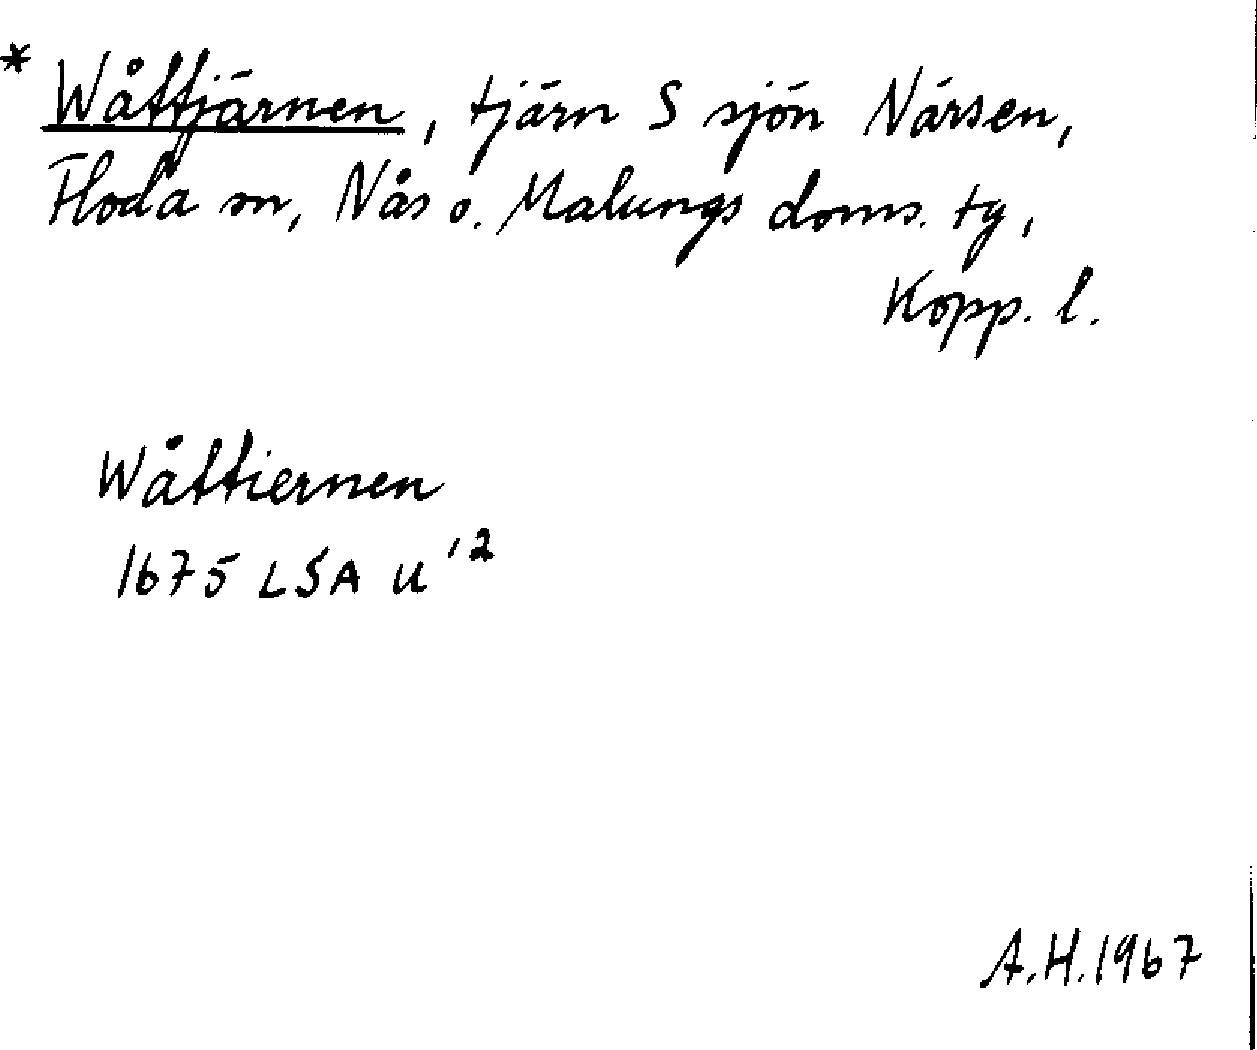 * Wåttjärnen, tjärn S sjön Närsen,
Floda sn, Nås o. Malungs doms. tg,
Kopp. l.
Wåttiernen
1675 LSA U'2
A.H.1967